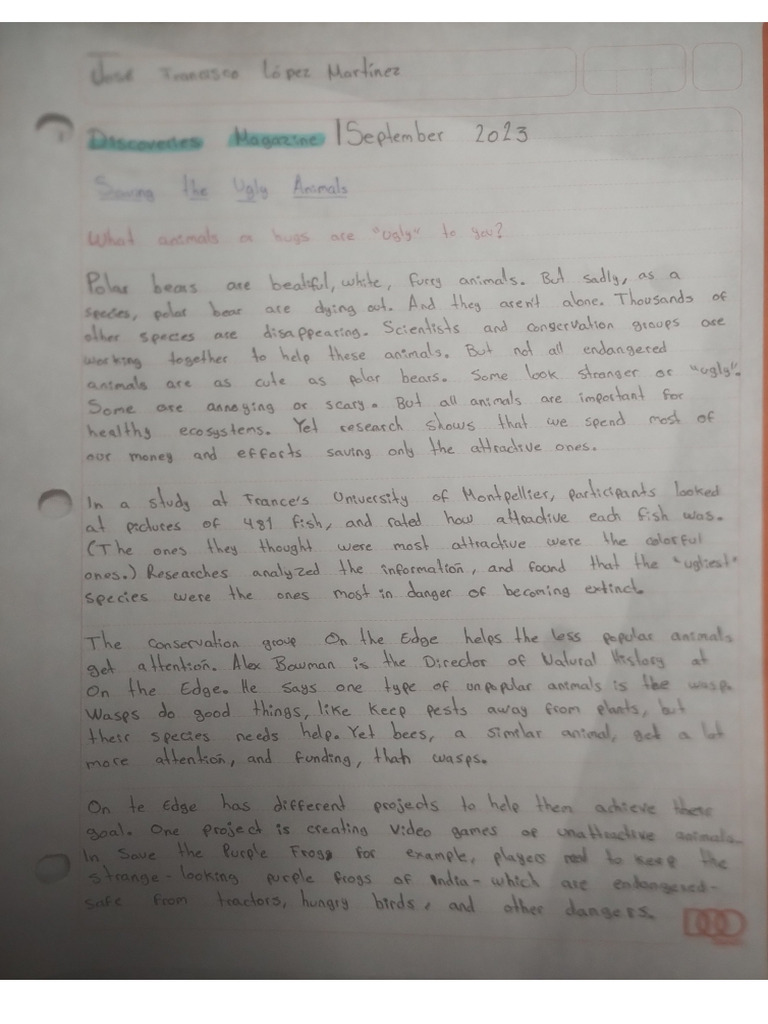 Jose Francisco López Martínez
Discoveries Magazine | September 2023
Saving the Ugly Animals
What animals or bugs are "ugly" to you?
Polar bears are beatiful, white, furry animals. But sadly, as a
species, polar bear are dying out. And they aren't alone. Thousands of
other species are disappearing. Scientists and conservation groups are
working together to help these animals. But not all endangered
animals are as cute as polar bears. Some look stranger or "ugly".
Some are annoying or scary. But all animals are important for
healthy ecosystems. Yet research shows that we spend most of
our money and efforts saving only the attractive ones.
In a study at France's University of Montpellier, participants looked
at pictures of 481 fish, and rated how attractive each fish was.
(The ones they thought were most attractive were the colorful
ones.) Researches analyzed the information, and found that the "ugliest"
species were the ones most in danger of becoming extinct.
The conservation group On the Edge helps the less popular animals
get attention. Alex Bowman is the Director of Natural History at
On the Edge. He says one type of unpopular animals is the wasp.
Wasps do good things, like keep pests away from plants, but
their species needs help. Yet bees, a similar animal, get a lot
more attention, and funding, than wasps.
On te Edge has different projects to help them achieve there
goal. One project is creating video games of unattractive animals.
In Save the Purple Frogs for example, players need to keep the
strange-looking purple frogs of India - which are endangered-
safe from tractors, hungry birds, and other dangers.